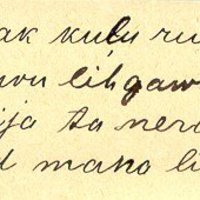 ak kulu ru
wu lihgaw
ija ta nero
d maho li